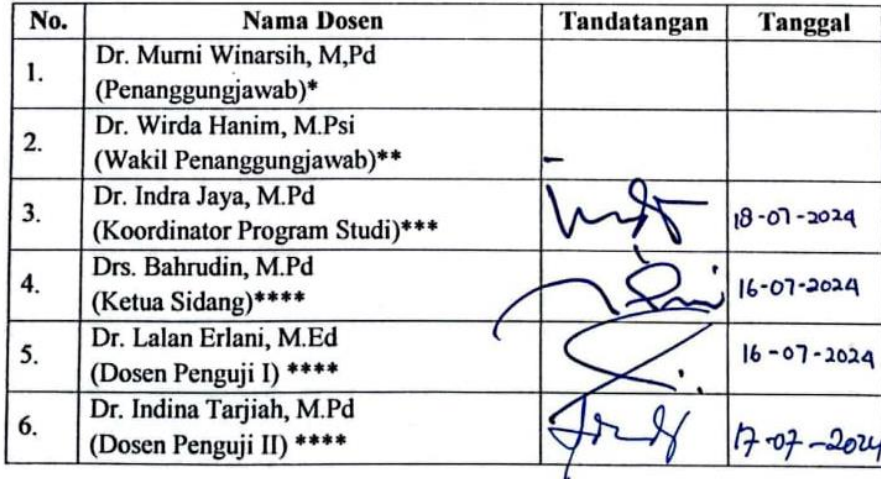 No. Nama Dosen Tandatangan Tanggal
1. Dr. Murni Winarsih, M,Pd
(Penanggungjawab)*
2. Dr. Wirda Hanim, M.Psi
(Wakil Penanggungjawab)**
3. Dr. Indra Jaya, M.Pd
(Koordinator Program Studi)*** 18-07-2024
4. Drs. Bahrudin, M.Pd
(Ketua Sidang)**** 16-07-2024
5. Dr. Lalan Erlani, M.Ed
(Dosen Penguji I) **** 16-07-2024
6. Dr. Indina Tarjiah, M.Pd
(Dosen Penguji II) **** 17-07-2024